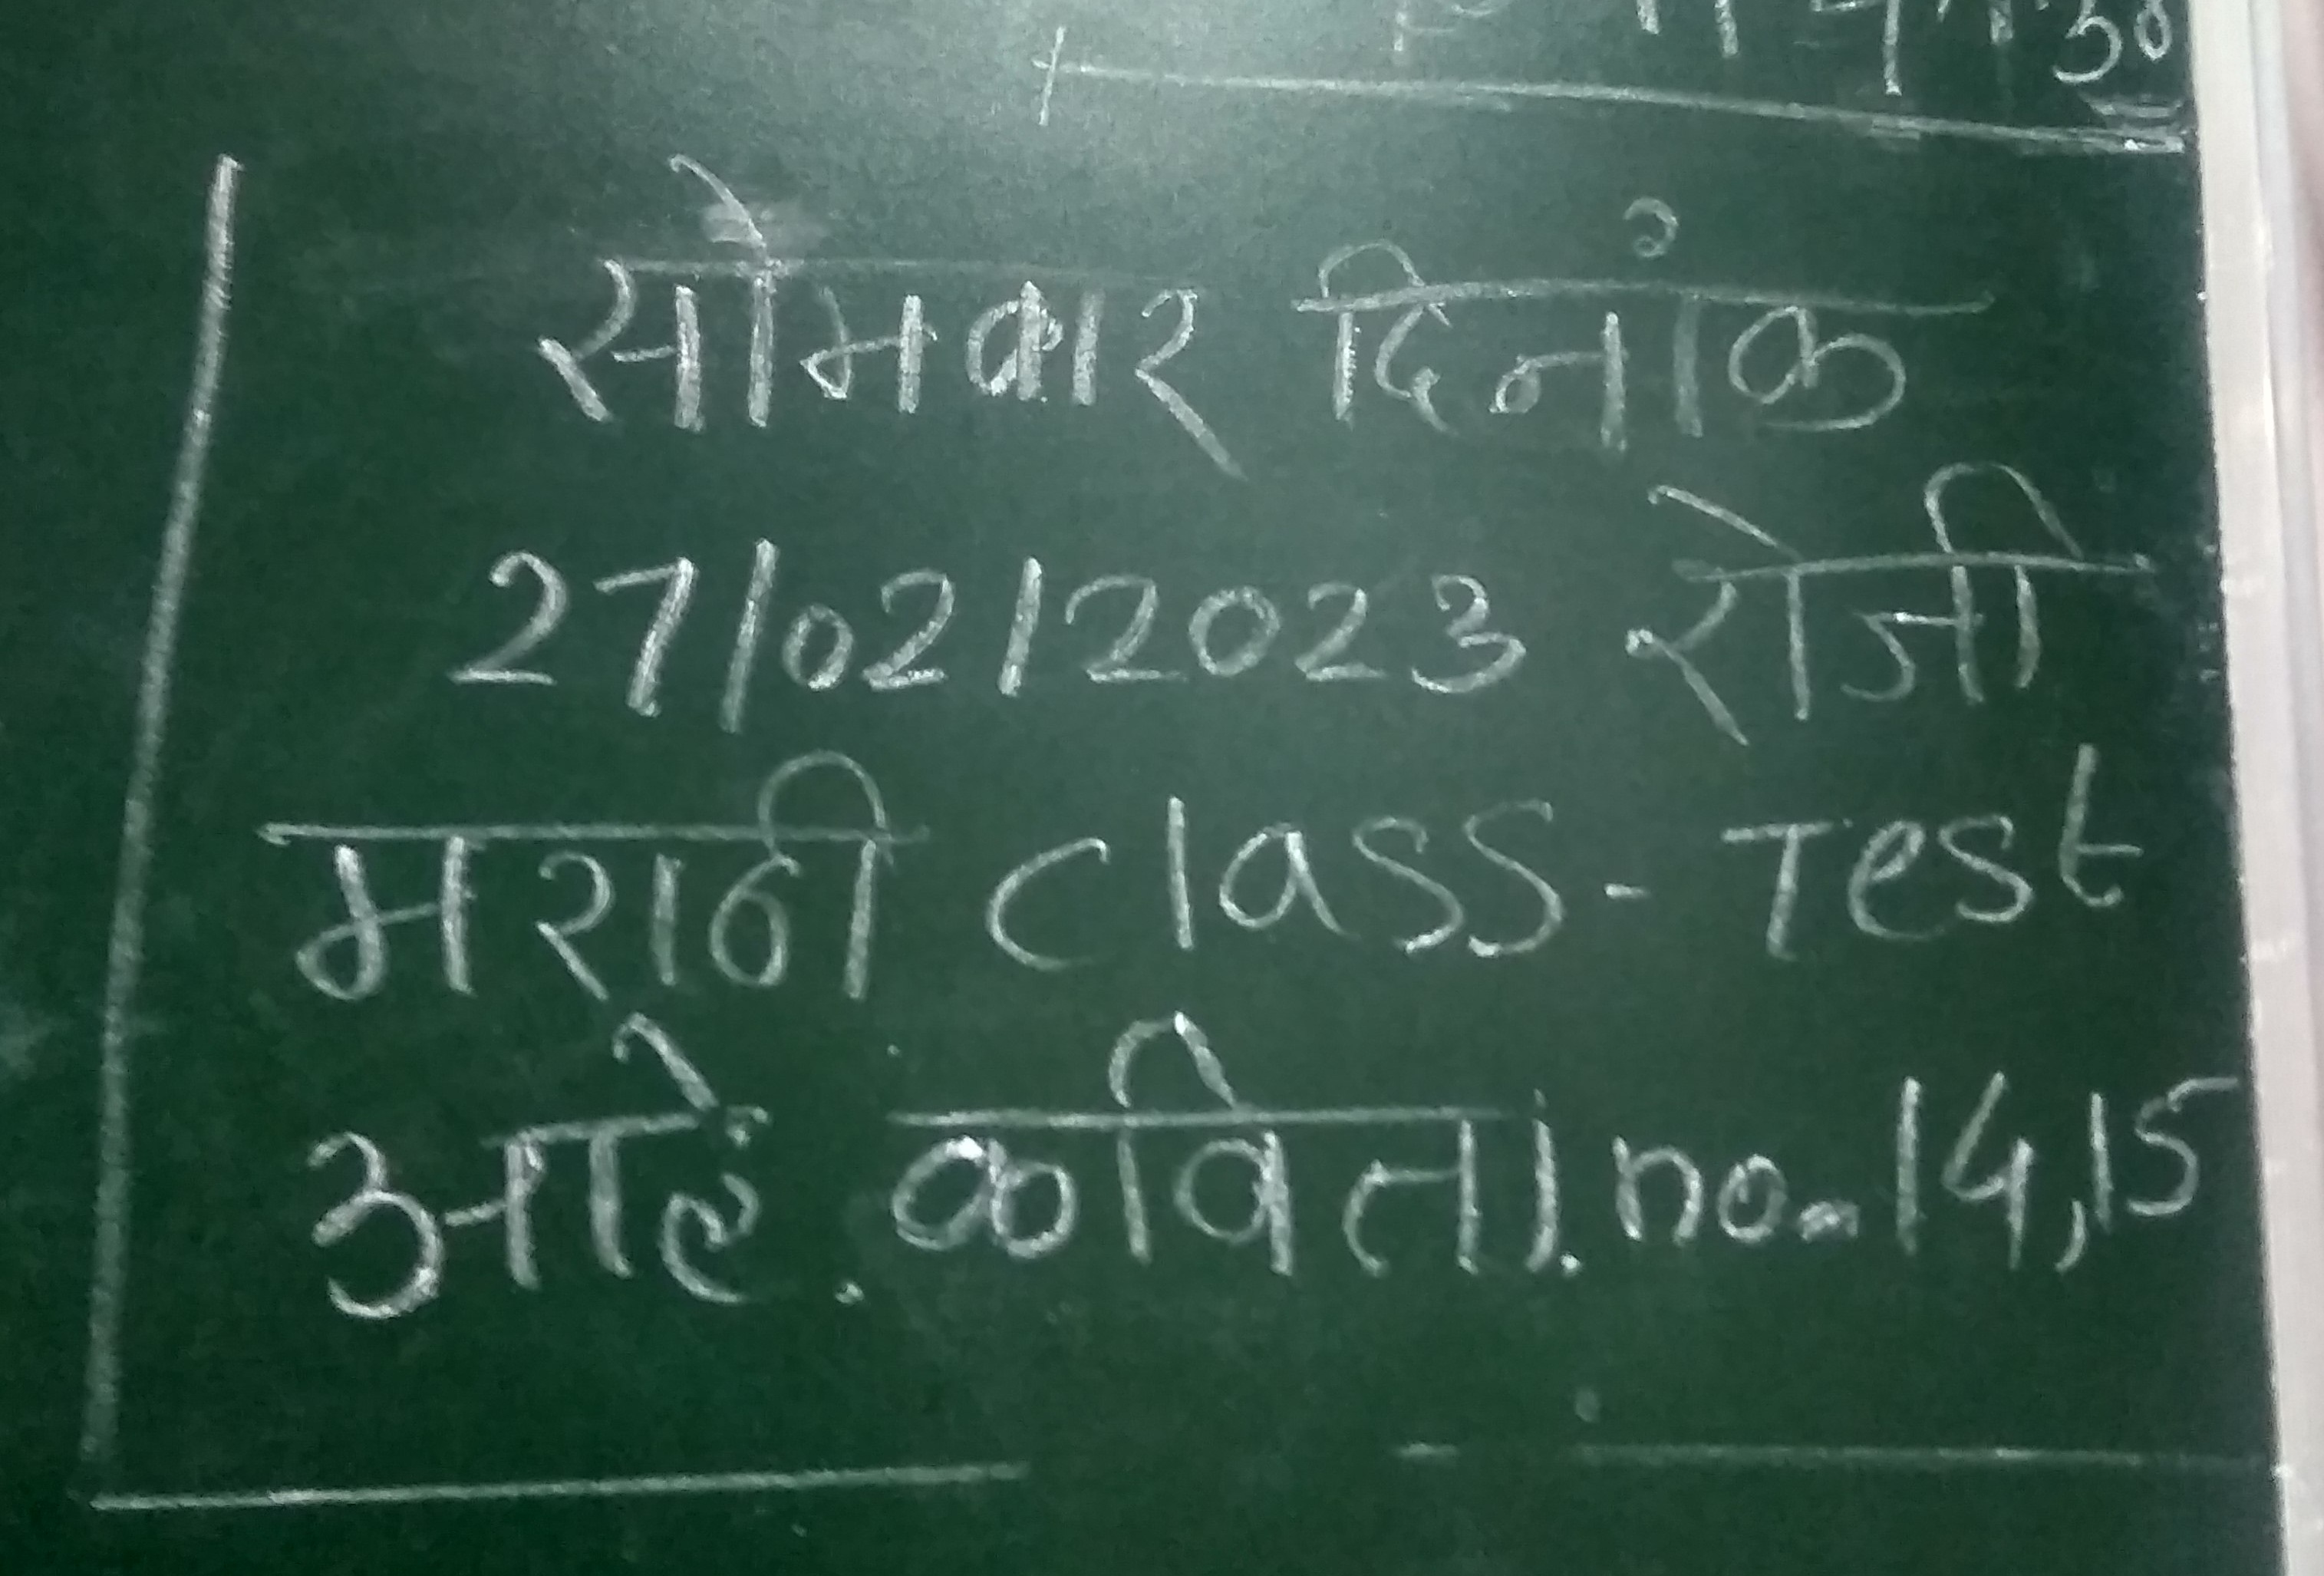 सोमवार दिनांक
27/02/2023 रोजी
मराठी class - Test
आहे. कविता. no. 14,15